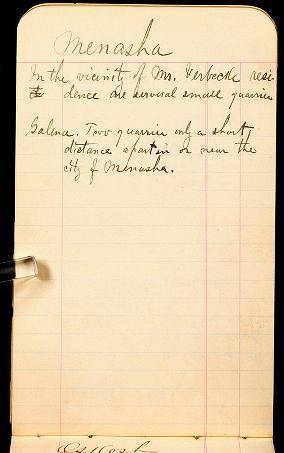 Menasha
In the vicinity of Mr. Verbecke resi
dence are serveral small quarries
Galena. Two quarries only a short
distance apart in or near the
city of Menasha.
Oskosh